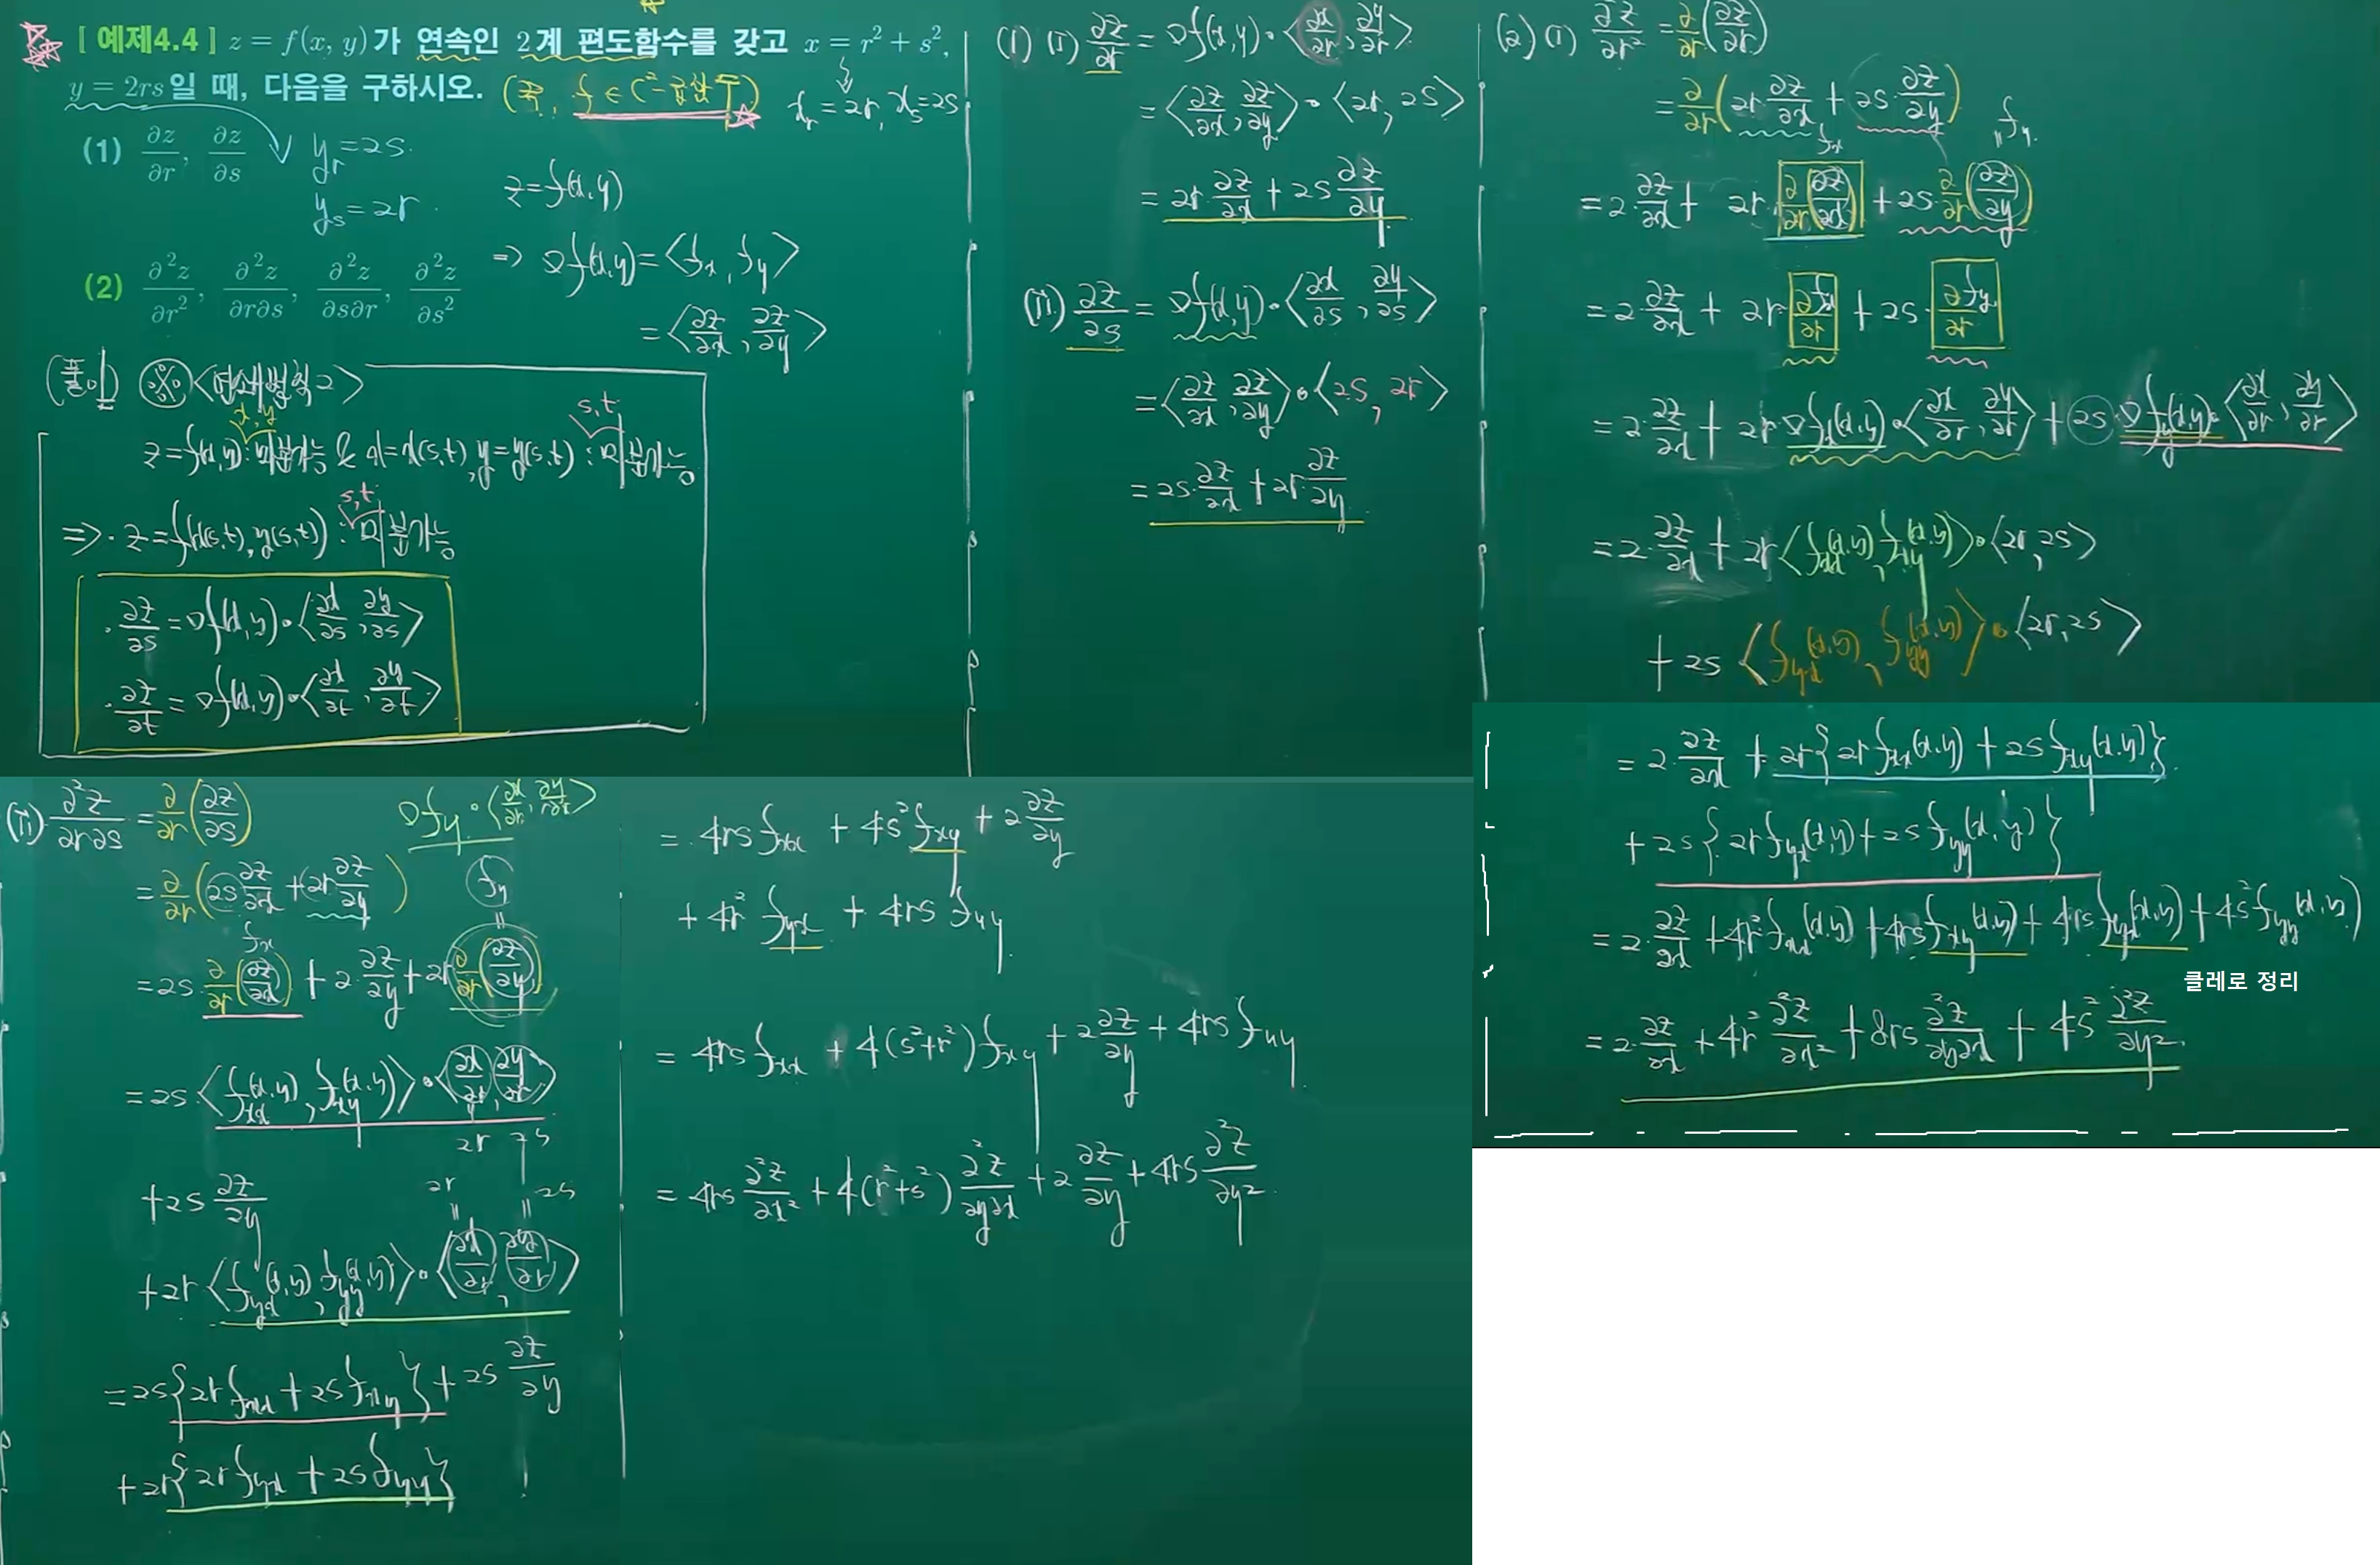 [ 예제4.4 ] z = f(x, y)가 연속인 2계 편도함수를 갖고 x = r² + s²,
y = 2rs일 때, 다음을 구하시오. (즉, f ∈ C²-급함수)
x_r = 2r, x_s = 2s
(1) ∂z/∂r, ∂z/∂s
y_r = 2s.
y_s = 2r.
(2) ∂²z/∂r², ∂²z/∂r∂s, ∂²z/∂s∂r, ∂²z/∂s²
z = f(x, y)
⇒ ∇f(x, y) = <f_x, f_y>
= <∂z/∂x, ∂z/∂y>
(풀이) ※ <연쇄법칙2>
x, y
s, t
z = f(x, y) : 미분가능 & x = x(s, t), y = y(s, t) : 미분가능
s, t
⇒ · z = f(x(s, t), y(s, t)) : 미분가능
· ∂z/∂s = ∇f(x, y) · <∂x/∂s, ∂y/∂s>
· ∂z/∂t = ∇f(x, y) · <∂x/∂t, ∂y/∂t>
(1) (i) ∂z/∂r = ∇f(x, y) · <∂x/∂r, ∂y/∂r>
= <∂z/∂x, ∂z/∂y> · <2r, 2s>
= 2r · ∂z/∂x + 2s ∂z/∂y
(ii) ∂z/∂s = ∇f(x, y) · <∂x/∂s, ∂y/∂s>
= <∂z/∂x, ∂z/∂y> · <2s, 2r>
= 2s · ∂z/∂x + 2r · ∂z/∂y
(2) (i) ∂²z/∂r² = ∂/∂r (∂z/∂r)
= ∂/∂r (2r · ∂z/∂x + 2s · ∂z/∂y)
f_x
" f_y
= 2 · ∂z/∂x + 2r · ∂/∂r (∂z/∂x) + 2s · ∂/∂r (∂z/∂y)
= 2 · ∂z/∂x + 2r · ∂f_x/∂r + 2s · ∂f_y/∂r
= 2 · ∂z/∂x + 2r · ∇f_x(x, y) · <∂x/∂r, ∂y/∂r> + 2s · ∇f_y(x, y) · <∂x/∂r, ∂y/∂r>
= 2 · ∂z/∂x + 2r <f_xx(x, y), f_xy(x, y)> · <2r, 2s>
+ 2s <f_yx(x, y), f_yy(x, y)> · <2r, 2s>
= 2 · ∂z/∂x + 2r{2r f_xx(x, y) + 2s f_xy(x, y)}
+ 2s{2r f_yx(x, y) + 2s f_yy(x, y)}
= 2 · ∂z/∂x + 4r² f_xx(x, y) + 4rs f_xy(x, y) + 4rs f_yx(x, y) + 4s² f_yy(x, y)
클레로 정리
= 2 · ∂z/∂x + 4r² ∂²z/∂x² + 8rs ∂²z/∂y∂x + 4s² ∂²z/∂y²
(ii) ∂²z/∂r∂s = ∂/∂r (∂z/∂s)
∇f_y · <∂x/∂r, ∂y/∂r>
= ∂/∂r (2s ∂z/∂x + 2r ∂z/∂y)
f_y
f_x
"
= 2s · ∂/∂r (∂z/∂x) + 2 · ∂z/∂y + 2r ∂/∂r (∂z/∂y)
= 2s · <f_xx(x, y), f_xy(x, y)> · <∂x/∂r, ∂y/∂r>
2r 2s
+ 2s ∂z/∂y
2r 2s
" "
+ 2r <f_yx(x, y), f_yy(x, y)> · <∂x/∂r, ∂y/∂r>
= 2s{2r f_xx + 2s f_xy} + 2s ∂z/∂y
+ 2r{2r f_yx + 2s f_yy}
= 4rs f_xx + 4s² f_xy + 2 ∂z/∂y
+ 4r² f_yx + 4rs f_yy
= 4rs f_xx + 4(s² + r²) f_xy + 2 ∂z/∂y + 4rs f_yy
= 4rs ∂²z/∂x² + 4(r² + s²) ∂²z/∂y∂x + 2 ∂z/∂y + 4rs ∂²z/∂y²